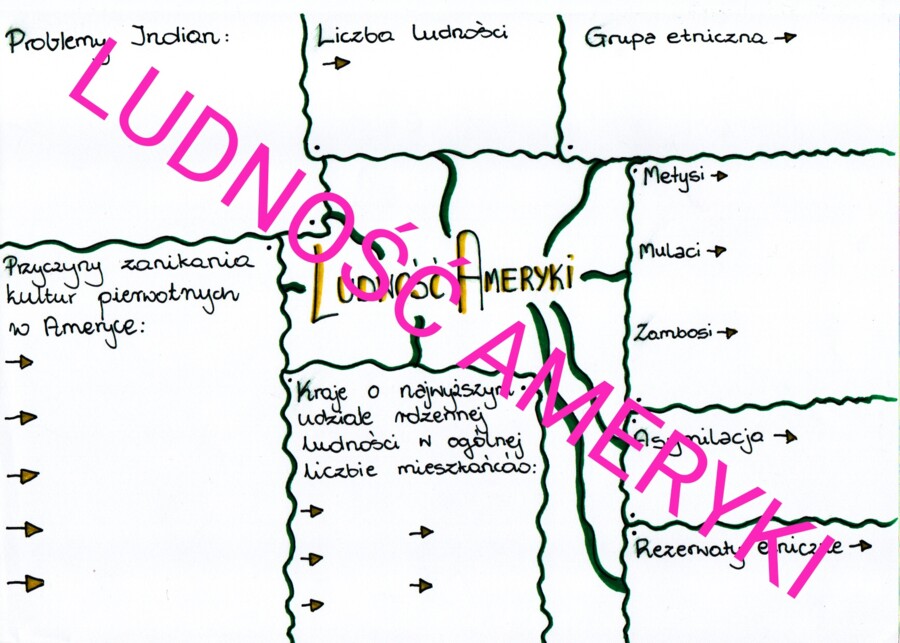 Problemy Indian:
Liczba ludności
Grupa etniczna
LUDNOŚĆ AMERYKI
Metysi
Mulaci
Zambosi
LUDNOŚĆ AMERYKI
Przyczyny zanikania
kultur pierwotnych
w Ameryce:
Kraje o najwyższym
udziale rdzennej
ludności w ogólnej
liczbie mieszkańców:
Asymilacja
Rezerwaty etniczne